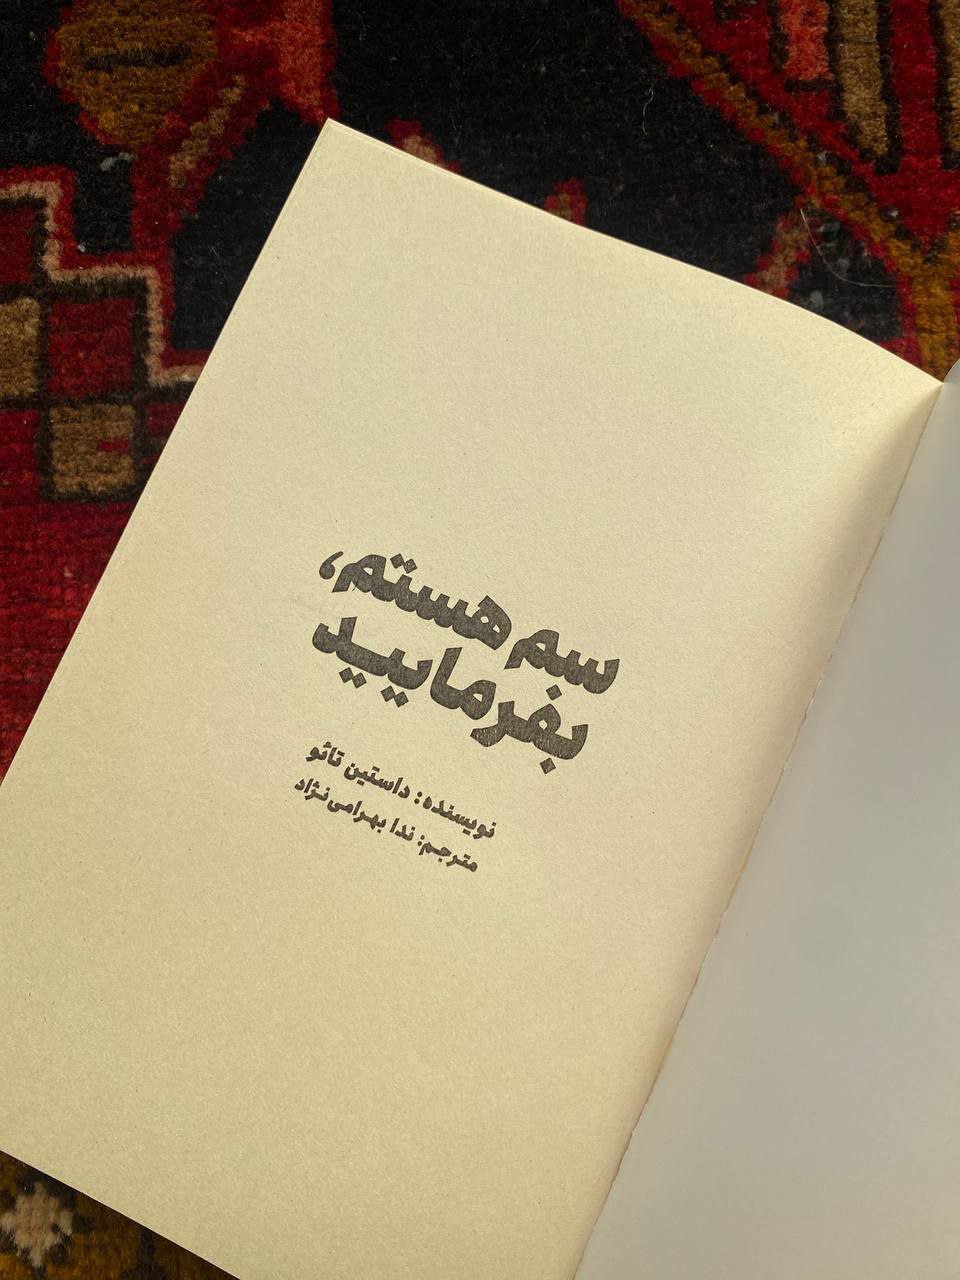 سم هستم،
بفرمایید
نویسنده: داستین تائو
مترجم: ندا بهرامی‌نژاد